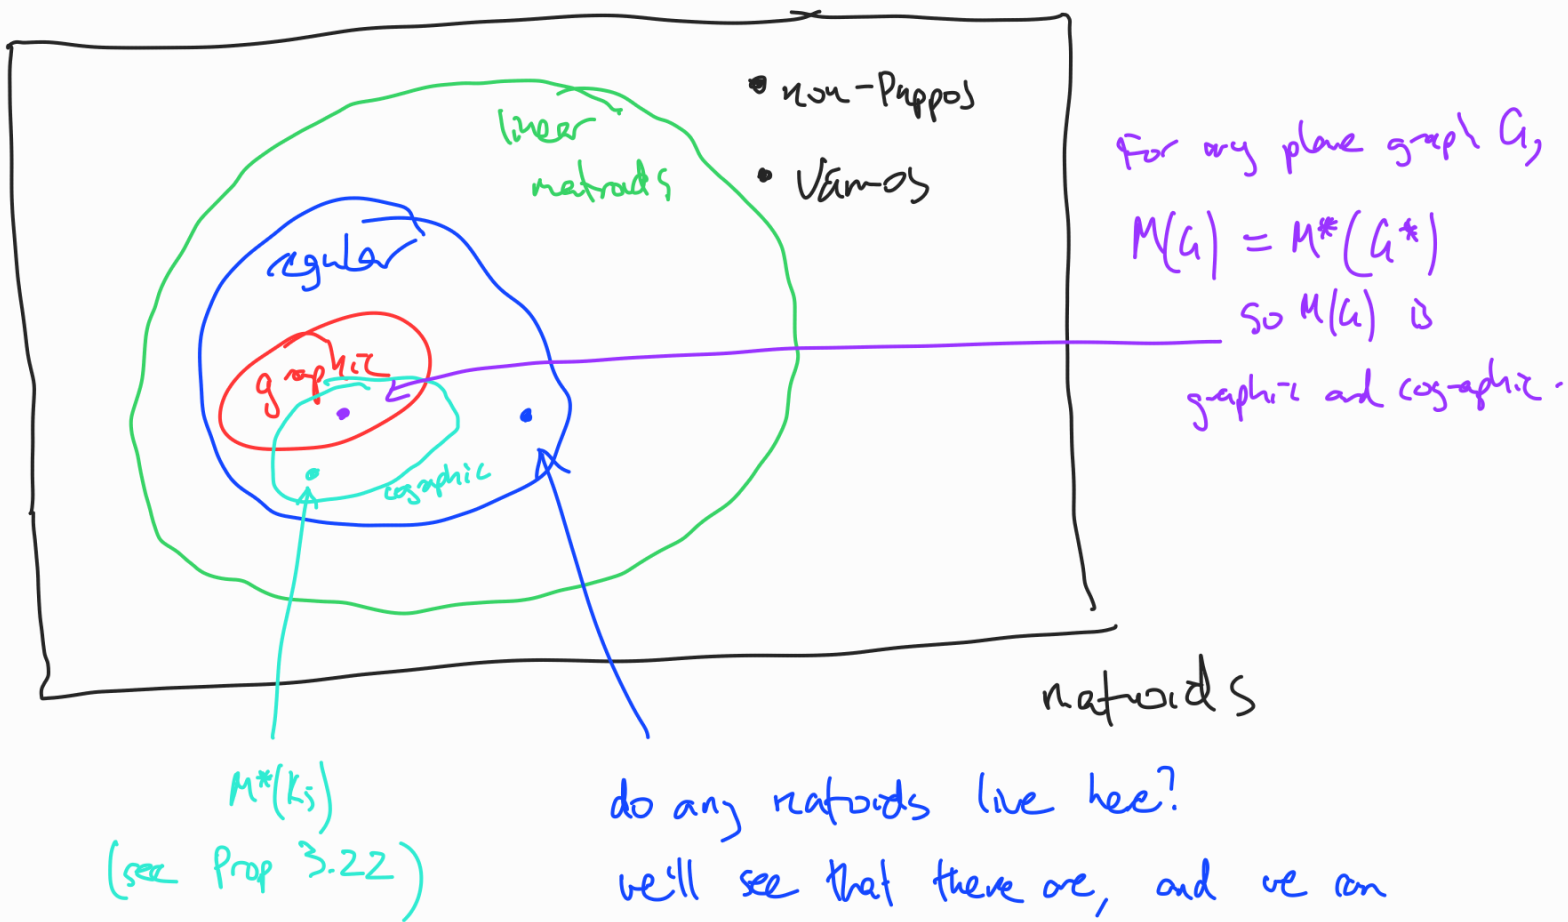 • non-Pappos
• Vámos
linear
matroids
regular
graphic
cographic
For any plane graph G,
M(G) = M*(G*)
so M(G) is
graphic and cographic.
matroids
M*(K5)
(see Prop 3.22)
do any matroids live here?
we'll see that there are, and we can